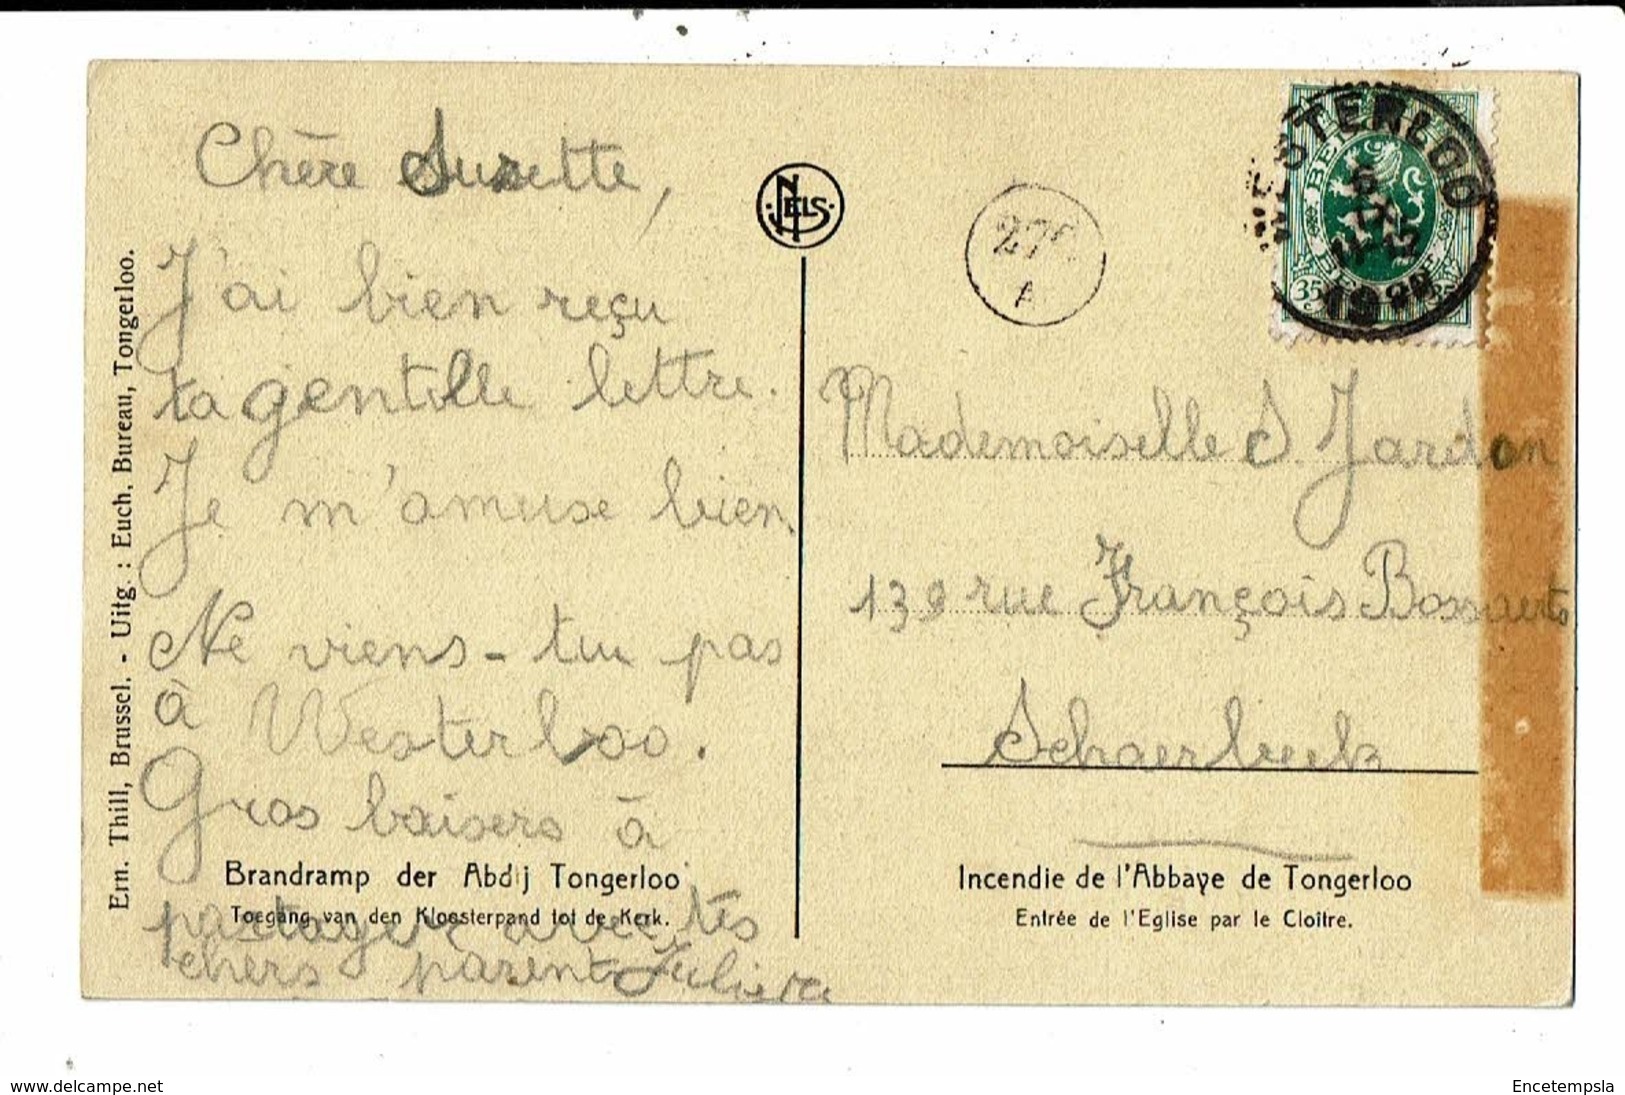 Chère Susette,
J'ai bien reçu
ta gentille lettre.
Je m'amuse bien
Ne viens-tu pas
à Westerloo.
Gros baisers à
partager avec tes
chers parents
Brandramp der Abdij Tongerloo
Toegang van den Kloosterpand tot de Kerk.
Ern. Thill, Brussel. - Uitg. : Euch. Bureau, Tongerloo.
NELS
A
WESTERLOO
BE
35
Mademoiselle S. Jardon
139 rue François Bossaerts
Schaerbeek
Incendie de l'Abbaye de Tongerloo
Entrée de l'Eglise par le Cloître.
www.delcampe.net
Encetempsla